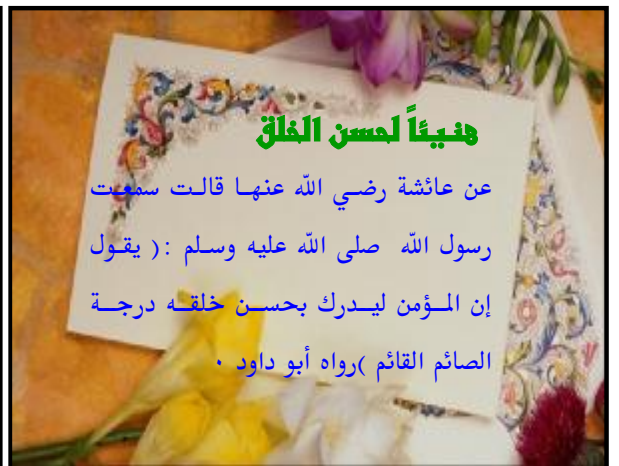 هنيئاً لحسن الخلق
عن عائشة رضي الله عنها قالت سمعت
رسول الله صلى الله عليه وسلم :( يقول
إن المؤمن ليدرك بحسن خلقه درجة
الصائم القائم )رواه أبو داود .